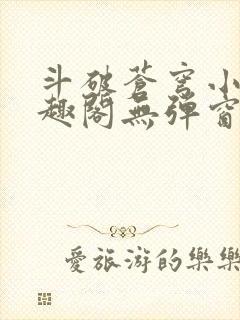 斗破蒼穹小
趣閣無彈窗
愛旅游的樂樂